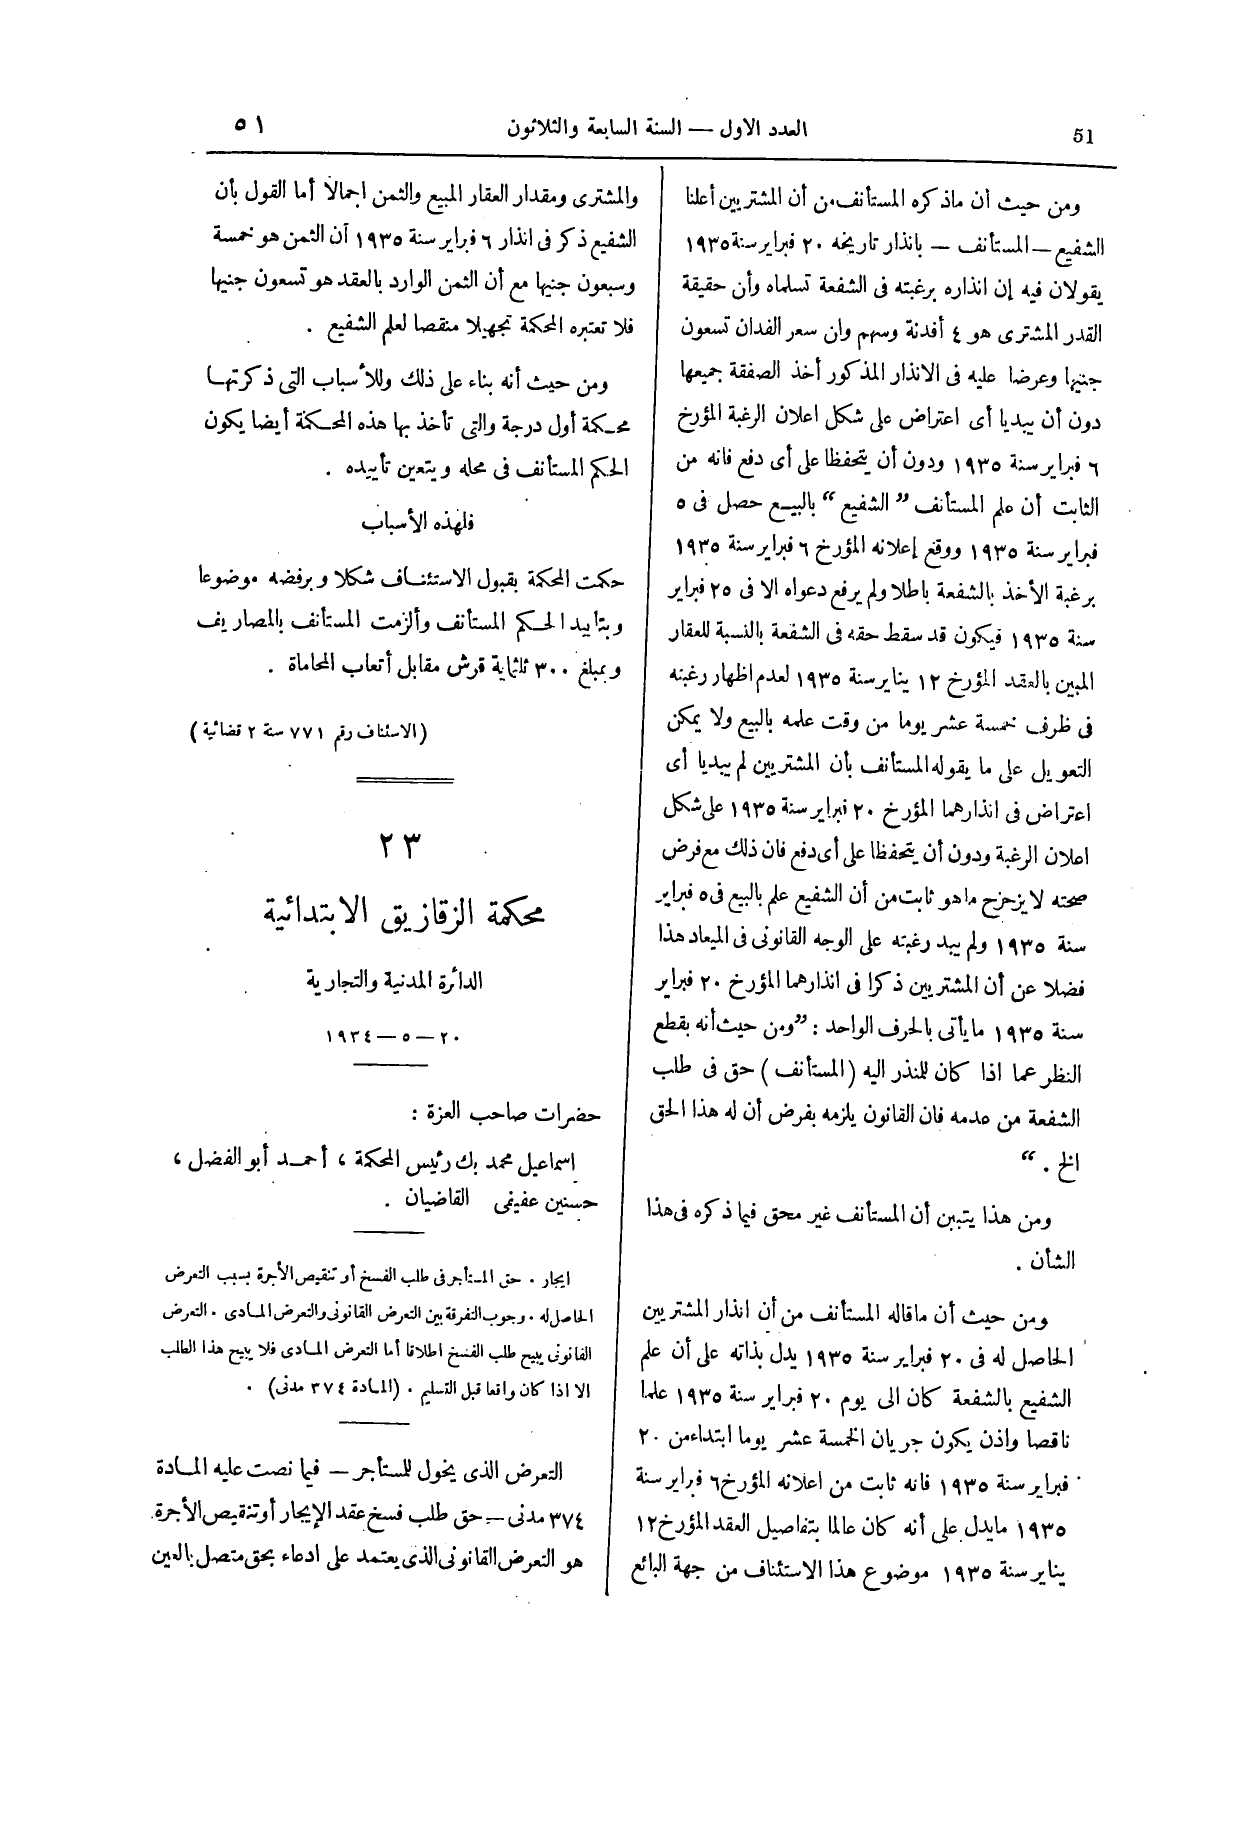 51
العدد الاول — السنة السابعة والثلاثون
٥١
ومن حيث أن ماذكره المستأنف من أن المشتريين أعلنا
الشفيع — المستأنف — بانذار تاريخه ٢٠ فبراير سنة ١٩٣٥
يقولان فيه إن انذاره برغبته فى الشفعة تسلماه وأن حقيقة
القدر المشترى هو ٤ أفدنة وسهم وان سعر الفدان تسعون
جنيها وعرضا عليه فى الانذار المذكور أخذ الصفقة جميعها
دون أن يبديا أى اعتراض على شكل اعلان الرغبة المؤرخ
٦ فبراير سنة ١٩٣٥ ودون أن يتحفظا على أى دفع فانه من
الثابت أن علم المستأنف ”الشفيع“ بالبيع حصل فى ٥
فبراير سنة ١٩٣٥ ووقع إعلانه المؤرخ ٦ فبراير سنة ١٩٣٥
برغبة الأخذ بالشفعة باطلا ولم يرفع دعواه الا فى ٢٥ فبراير
سنة ١٩٣٥ فيكون قد سقط حقه فى الشفعة بالنسبة للعقار
المبين بالعقد المؤرخ ١٢ يناير سنة ١٩٣٥ لعدم اظهار رغبته
فى ظرف خمسة عشر يوما من وقت علمه بالبيع ولا يمكن
التعويل على ما يقوله المستأنف بأن المشتريين لم يبديا أى
اعتراض فى انذارهما المؤرخ ٢٠ فبراير سنة ١٩٣٥ على شكل
اعلان الرغبة ودون أن يتحفظا على أى دفع فان ذلك مع فرض
صحته لا يزحزح ماهو ثابت من أن الشفيع علم بالبيع فى ٥ فبراير
سنة ١٩٣٥ ولم يبد رغبته على الوجه القانونى فى الميعاد هذا
فضلا عن أن المشتريين ذكرا فى انذارهما المؤرخ ٢٠ فبراير
سنة ١٩٣٥ ما يأتى بالحرف الواحد : ”ومن حيث أنه بقطع
النظر عما اذا كان للمنذر اليه (المستأنف) حق فى طلب
الشفعة من عدمه فان القانون يلزمه بفرض أن له هذا الحق
الخ . “
ومن هذا يتبين أن المستأنف غير محق فيما ذكره فى هذا
الشأن .
ومن حيث أن ماقاله المستأنف من أن انذار المشتريين
الحاصل له فى ٢٠ فبراير سنة ١٩٣٥ يدل بذاته على أن علم
الشفيع بالشفعة كان الى يوم ٢٠ فبراير سنة ١٩٣٥ علما
ناقصا واذن يكون جريان الخمسة عشر يوما ابتداء من ٢٠
فبراير سنة ١٩٣٥ فانه ثابت من اعلانه المؤرخ ٦ فبراير سنة
١٩٣٥ مايدل على أنه كان عالما بتفاصيل العقد المؤرخ ١٢
يناير سنة ١٩٣٥ موضوع هذا الاستئناف من جهة البائع
والمشترى ومقدار العقار المبيع والثمن اجمالا أما القول بأن
الشفيع ذكر فى انذار ٦ فبراير سنة ١٩٣٥ أن الثمن هو خمسة
وسبعون جنيها مع أن الثمن الوارد بالعقد هو تسعون جنيها
فلا تعتبره المحكمة تجهيلا منقصا لعلم الشفيع .
ومن حيث أنه بناء على ذلك وللأسباب التى ذكرتها
محكمة أول درجة والتى تأخذ بها هذه المحكمة أيضا يكون
الحكم المستأنف فى محله ويتعين تأييده .
فلهذه الأسباب
حكمت المحكمة بقبول الاستئناف شكلا وبرفضه موضوعا
وبتأييد الحكم المستأنف وألزمت المستأنف بالمصاريف
وبمبلغ ٣٠٠ ثلثماية قرش مقابل أتعاب المحاماة .
(الاستئناف رقم ٧٧١ سنة ٢ قضائية)
٢٣
محكمة الزقازيق الابتدائية
الدائرة المدنية والتجارية
٢٠ — ٥ — ١٩٣٤
حضرات صاحب العزة :
اسماعيل محمد بك رئيس المحكمة ، أحمد أبو الفضل ،
حسنين عفيفى القاضيان .
ايجار . حق المستأجر فى طلب الفسخ أو تنقيص الأجرة بسبب التعرض
الحاصل له . وجوب التفرقة بين التعرض القانونى والتعرض المادى . التعرض
القانونى يبيح طلب الفسخ اطلاقا أما التعرض المادى فلا يبيح هذا الطلب
الا اذا كان واقعا قبل التسليم . (المادة ٣٧٤ مدنى) .
التعرض الذى يخول للمستأجر — فيما نصت عليه المادة
٣٧٤ مدنى — حق طلب فسخ عقد الإيجار أو تنقيص الأجرة
هو التعرض القانونى الذى يعتمد على ادعاء بحق متصل بالعين